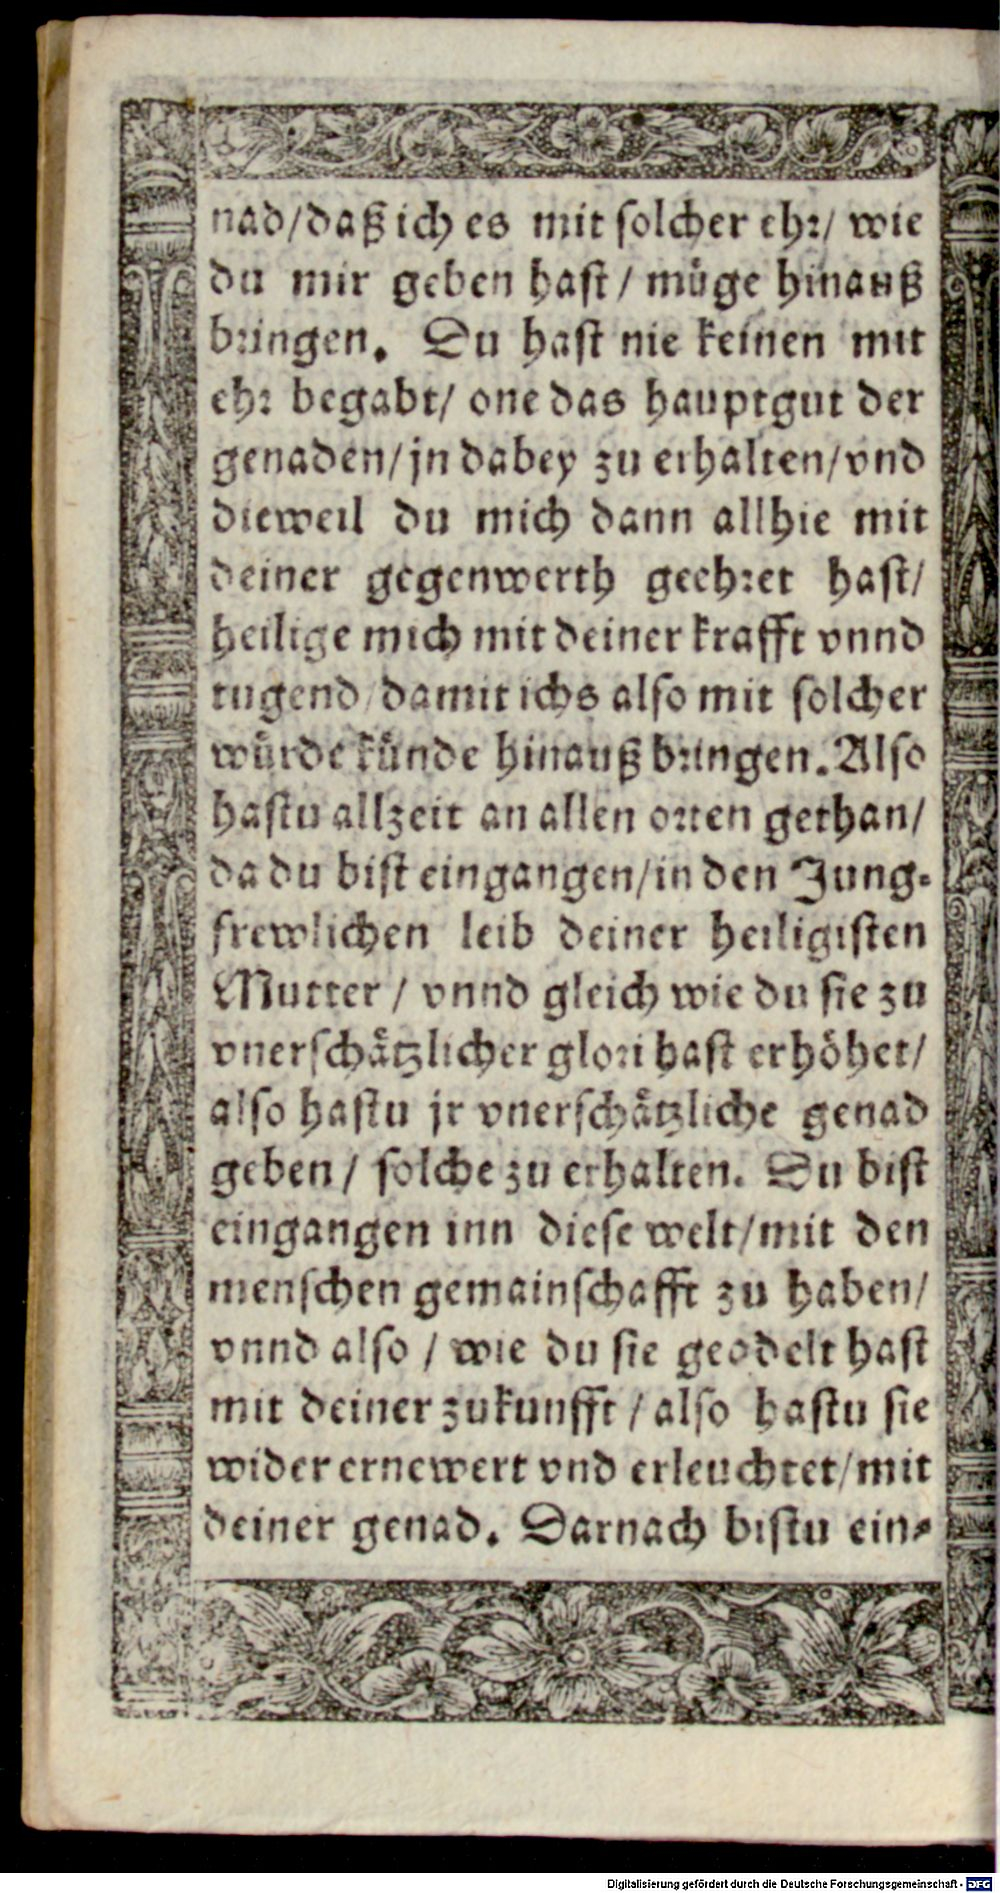 nad/daß ich es mit solcher ehr/ wie
du mir geben hast / müge hinauß
bringen. Du hast nie keinen mit
ehr begabt/ one das hauptgut der
genaden/jn dabey zu erhalten/vnd
dieweil du mich dann allhie mit
deiner gegenwerth geehret hast/
heilige mich mit deiner krafft vnnd
tugend/damit ichs also mit solcher
würde künde hinauß bringen. Also
hastu allzeit an allen orten gethan/
da du bist eingangen/in den Jung-
frewlichen leib deiner heiligisten
Mutter / vnnd gleich wie du sie zu
vnerschätzlicher glori hast erhöhet/
also hastu jr vnerschätzliche genad
geben / solche zu erhalten. Du bist
eingangen inn diese welt/mit den
menschen gemainschafft zu haben/
vnnd also / wie du sie geadelt hast
mit deiner zukunfft / also hastu sie
wider ernewert vnd erleuchtet/mit
deiner genad. Darnach bistu ein-
Digitalisierung gefördert durch die Deutsche Forschungsgemeinschaft - DFG